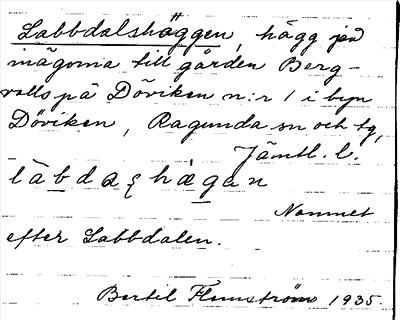 Labbdalshäggen, hägg på
inägorna till gården Berg-
valls på Döviken n:r 1 i byn
Döviken, Ragunda sn och tg,
Jämtl. l.
Namnet
efter Labbdalen.
Bertil Flemström 1935.